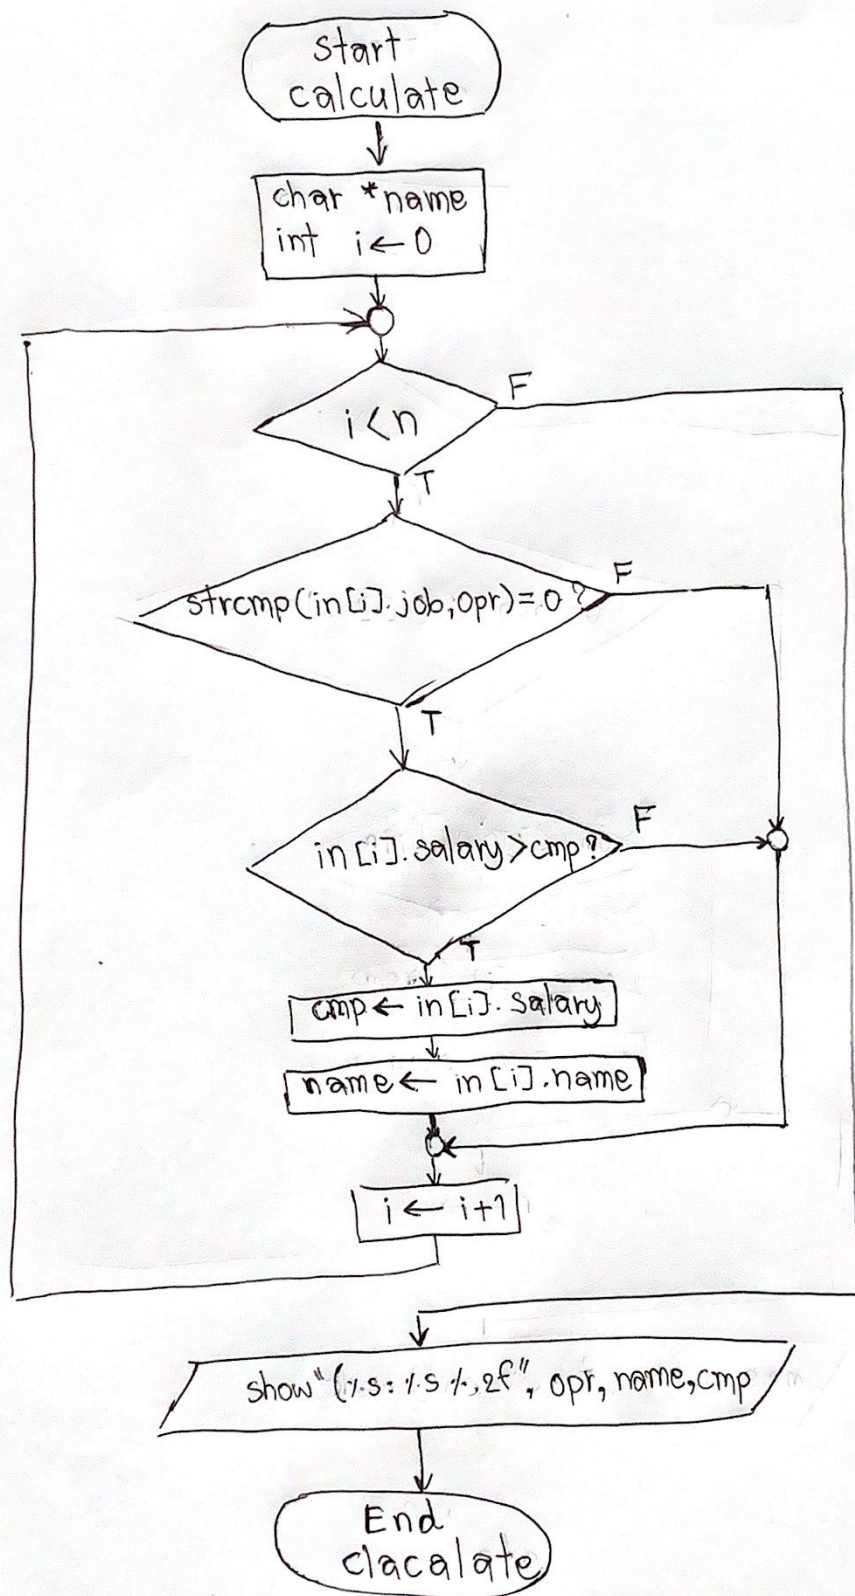 Start
calculate
char *name
int i ← 0
i < n
F
T
strcmp(in[i].job,opr) = 0 ?
F
T
in[i].salary > cmp ?
F
T
cmp ← in[i].salary
name ← in[i].name
i ← i+1
show "(%s: %s %.2f", opr, name, cmp
End
clacalate